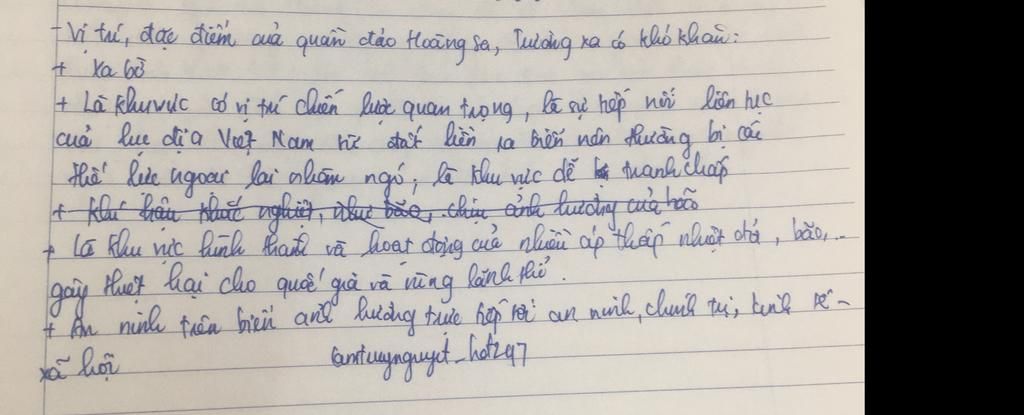 - Vị trí, đặc điểm của quần đảo Hoàng Sa, Trường xa có khó khăn:
+ Xa bờ
+ Là khu vực có vị trí chiến lược quan trọng, là sự tiếp nối liên tục
của lục địa Việt Nam từ đất liền ra biển nên thường bị các
thế lực ngoại lai nhòm ngó, là khu vực dễ tranh chấp
+ khí hậu khắc nghiệt, như bão, chịu ảnh hưởng của bão
+ Là khu vực hình thành và hoạt động của nhiều áp thấp nhiệt đới, bão,...
gây thiệt hại cho quốc gia và vùng lãnh thổ.
+ An ninh trên biển ảnh hưởng trực tiếp tới an ninh, chính trị, kinh tế -
xã hội